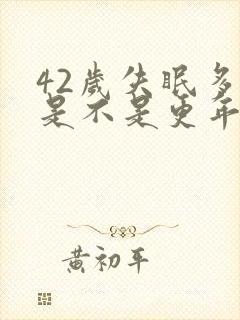 42歲失眠多
是不是更年
黃初平